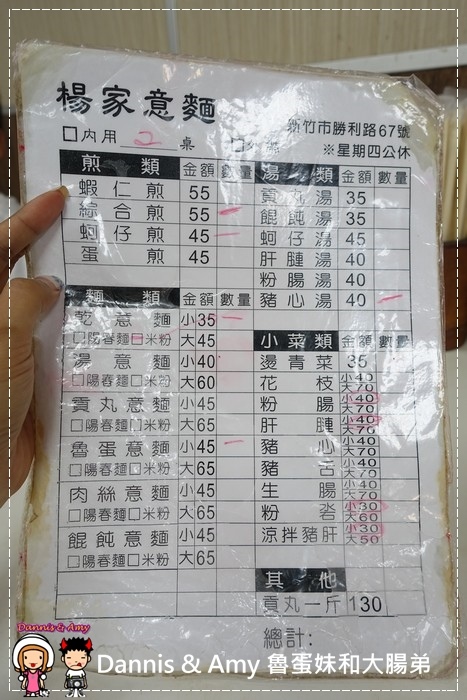 楊家意麵
新竹市勝利路67號
□內用 2 桌
※星期四公休
煎類 金額 數量
蝦仁煎 55
綜合煎 55
蚵仔煎 45
蛋煎 45
湯類 金額 數量
貢丸湯 35
餛飩湯 35
蚵仔湯 45
肝腄湯 40
粉腸湯 40
豬心湯 40
麵類 金額 數量
乾意麵 小35
□陽春麵□米粉 大45
湯意麵 小40
□陽春麵□米粉 大60
貢丸意麵 小45
□陽春麵□米粉 大65
魯蛋意麵 小45
□陽春麵□米粉 大65
肉絲意麵 小45
□陽春麵□米粉 大65
餛飩意麵 小45
□陽春麵□米粉 大65
小菜類 金額 數量
燙青菜 35
花枝 小40 大70
粉腸 小40 大70
肝腄 小40 大70
豬心 小40 大70
豬舌 小40 大70
生腸 小40 大70
粉沯 小30 大60
涼拌豬肝 小30 大50
其他
貢丸一斤 130
總計:
Dannis & Amy
Dannis & Amy 魯蛋妹和大腸弟